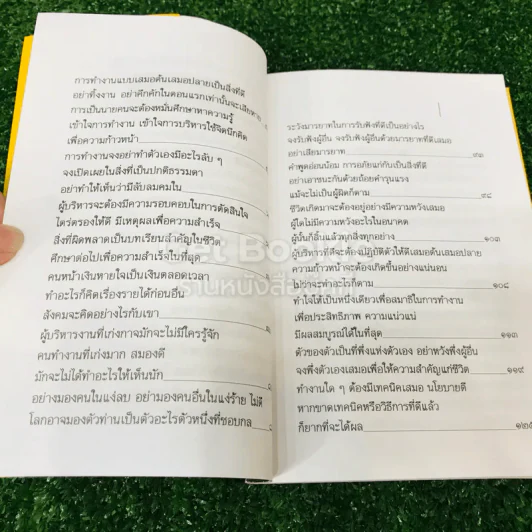 การทำงานแบบเสมอต้นเสมอปลายเป็นสิ่งที่ดี
อย่าทิ้งงาน อย่าคึกคักในตอนแรกเท่านั้นจะเสียหาย
การเป็นนายคนจะต้องหมั่นศึกษาหาความรู้
เข้าใจการทำงาน เข้าใจการบริหารใช้จิตนึกคิด
เพื่อความก้าวหน้า
การทำงานจงอย่าทำตัวเองมีอะไรลับ ๆ
จงเปิดเผยในสิ่งที่เป็นปกติธรรมดา
อย่าทำให้เห็นว่ามีลับลมคมใน
ผู้บริหารจะต้องมีความรอบคอบในการตัดสินใจ
ไตร่ตรองให้ดี มีเหตุผลเพื่อความสำเร็จ
สิ่งที่ผิดพลาดเป็นบทเรียนสำคัญในชีวิต
ศึกษาต่อไปเพื่อความสำเร็จในที่สุด
คนหน้าเงินหายใจเป็นเงินตลอดเวลา
ทำอะไรก็คิดเรื่องรายได้ก่อนอื่น
สังคมจะคิดอย่างไรกับเขา
ผู้บริหารงานที่เก่งกาจมักจะไม่มีใครรู้จัก
คนทำงานที่เก่งมาก สมองดี
มักจะไม่ได้ทำอะไรให้เห็นนัก
อย่ามองคนในแง่ลบ อย่ามองคนอื่นในแง่ร้าย ไม่ดี
โลกอาจมองตัวท่านเป็นตัวอะไรตัวหนึ่งที่ชอบกล
ระวังมารยาทในการรับฟังที่ดีเป็นอย่างไร
จงรับฟังผู้อื่น จงรับฟังผู้อื่นด้วยมารยาทที่ดีเสมอ
อย่าเสียมารยาท ๙๓
คำพูดอ่อนน้อม การอภัยแก่กันเป็นสิ่งที่ดี
อย่าเอาชนะกันด้วยถ้อยคำรุนแรง
แม้จะไม่เป็นผู้ผิดก็ตาม ๙๘
ชีวิตเกิดมาจะต้องอยู่อย่างมีความหวังเสมอ
ผู้ใดไม่มีความหวังอะไรในอนาคต
ผู้นั้นก็สิ้นแล้วทุกสิ่งทุกอย่าง ๑๐๓
ผู้บริหารที่ดีจะต้องปฏิบัติตัวให้ดีเสมอต้นเสมอปลาย
ความก้าวหน้าจะต้องเกิดขึ้นอย่างแน่นอน
ไม่ว่าจะทำอะไรก็ตาม ๑๐๘
ทำใจให้เป็นหนึ่งเดียวเพื่อสมาธิในการทำงาน
เพื่อประสิทธิภาพ ความแน่วแน่
มีผลสมบูรณ์ได้ในที่สุด ๑๑๓
ตัวของตัวเป็นที่พึ่งแห่งตัวเอง อย่าหวังพึ่งผู้อื่น
จงพึ่งตัวเองเสมอเพื่อให้ความสำคัญแก่ชีวิต ๑๑๙
ทำงานใด ๆ ต้องมีเทคนิคเสมอ นโยบายดี
หากขาดเทคนิคหรือวิธีการที่ดีแล้ว
ก็ยากที่จะได้ผล ๑๒๕